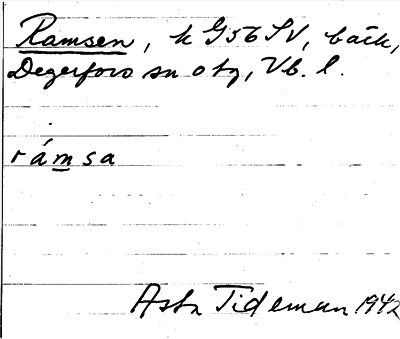 Ramsen, k G56 SV, bäck,
Degerfors sn o tg, Vb. l.
rámsa
Asta Tideman 1942